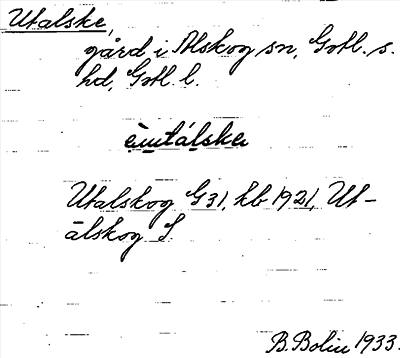 Utalske,
gård i Alskog sn, Gotl. s.
hd, Gotl. l.
èu̯tálske
Utalskog G 31, hb 1921, Ut-
älskog S.
B. Bolin 1933.